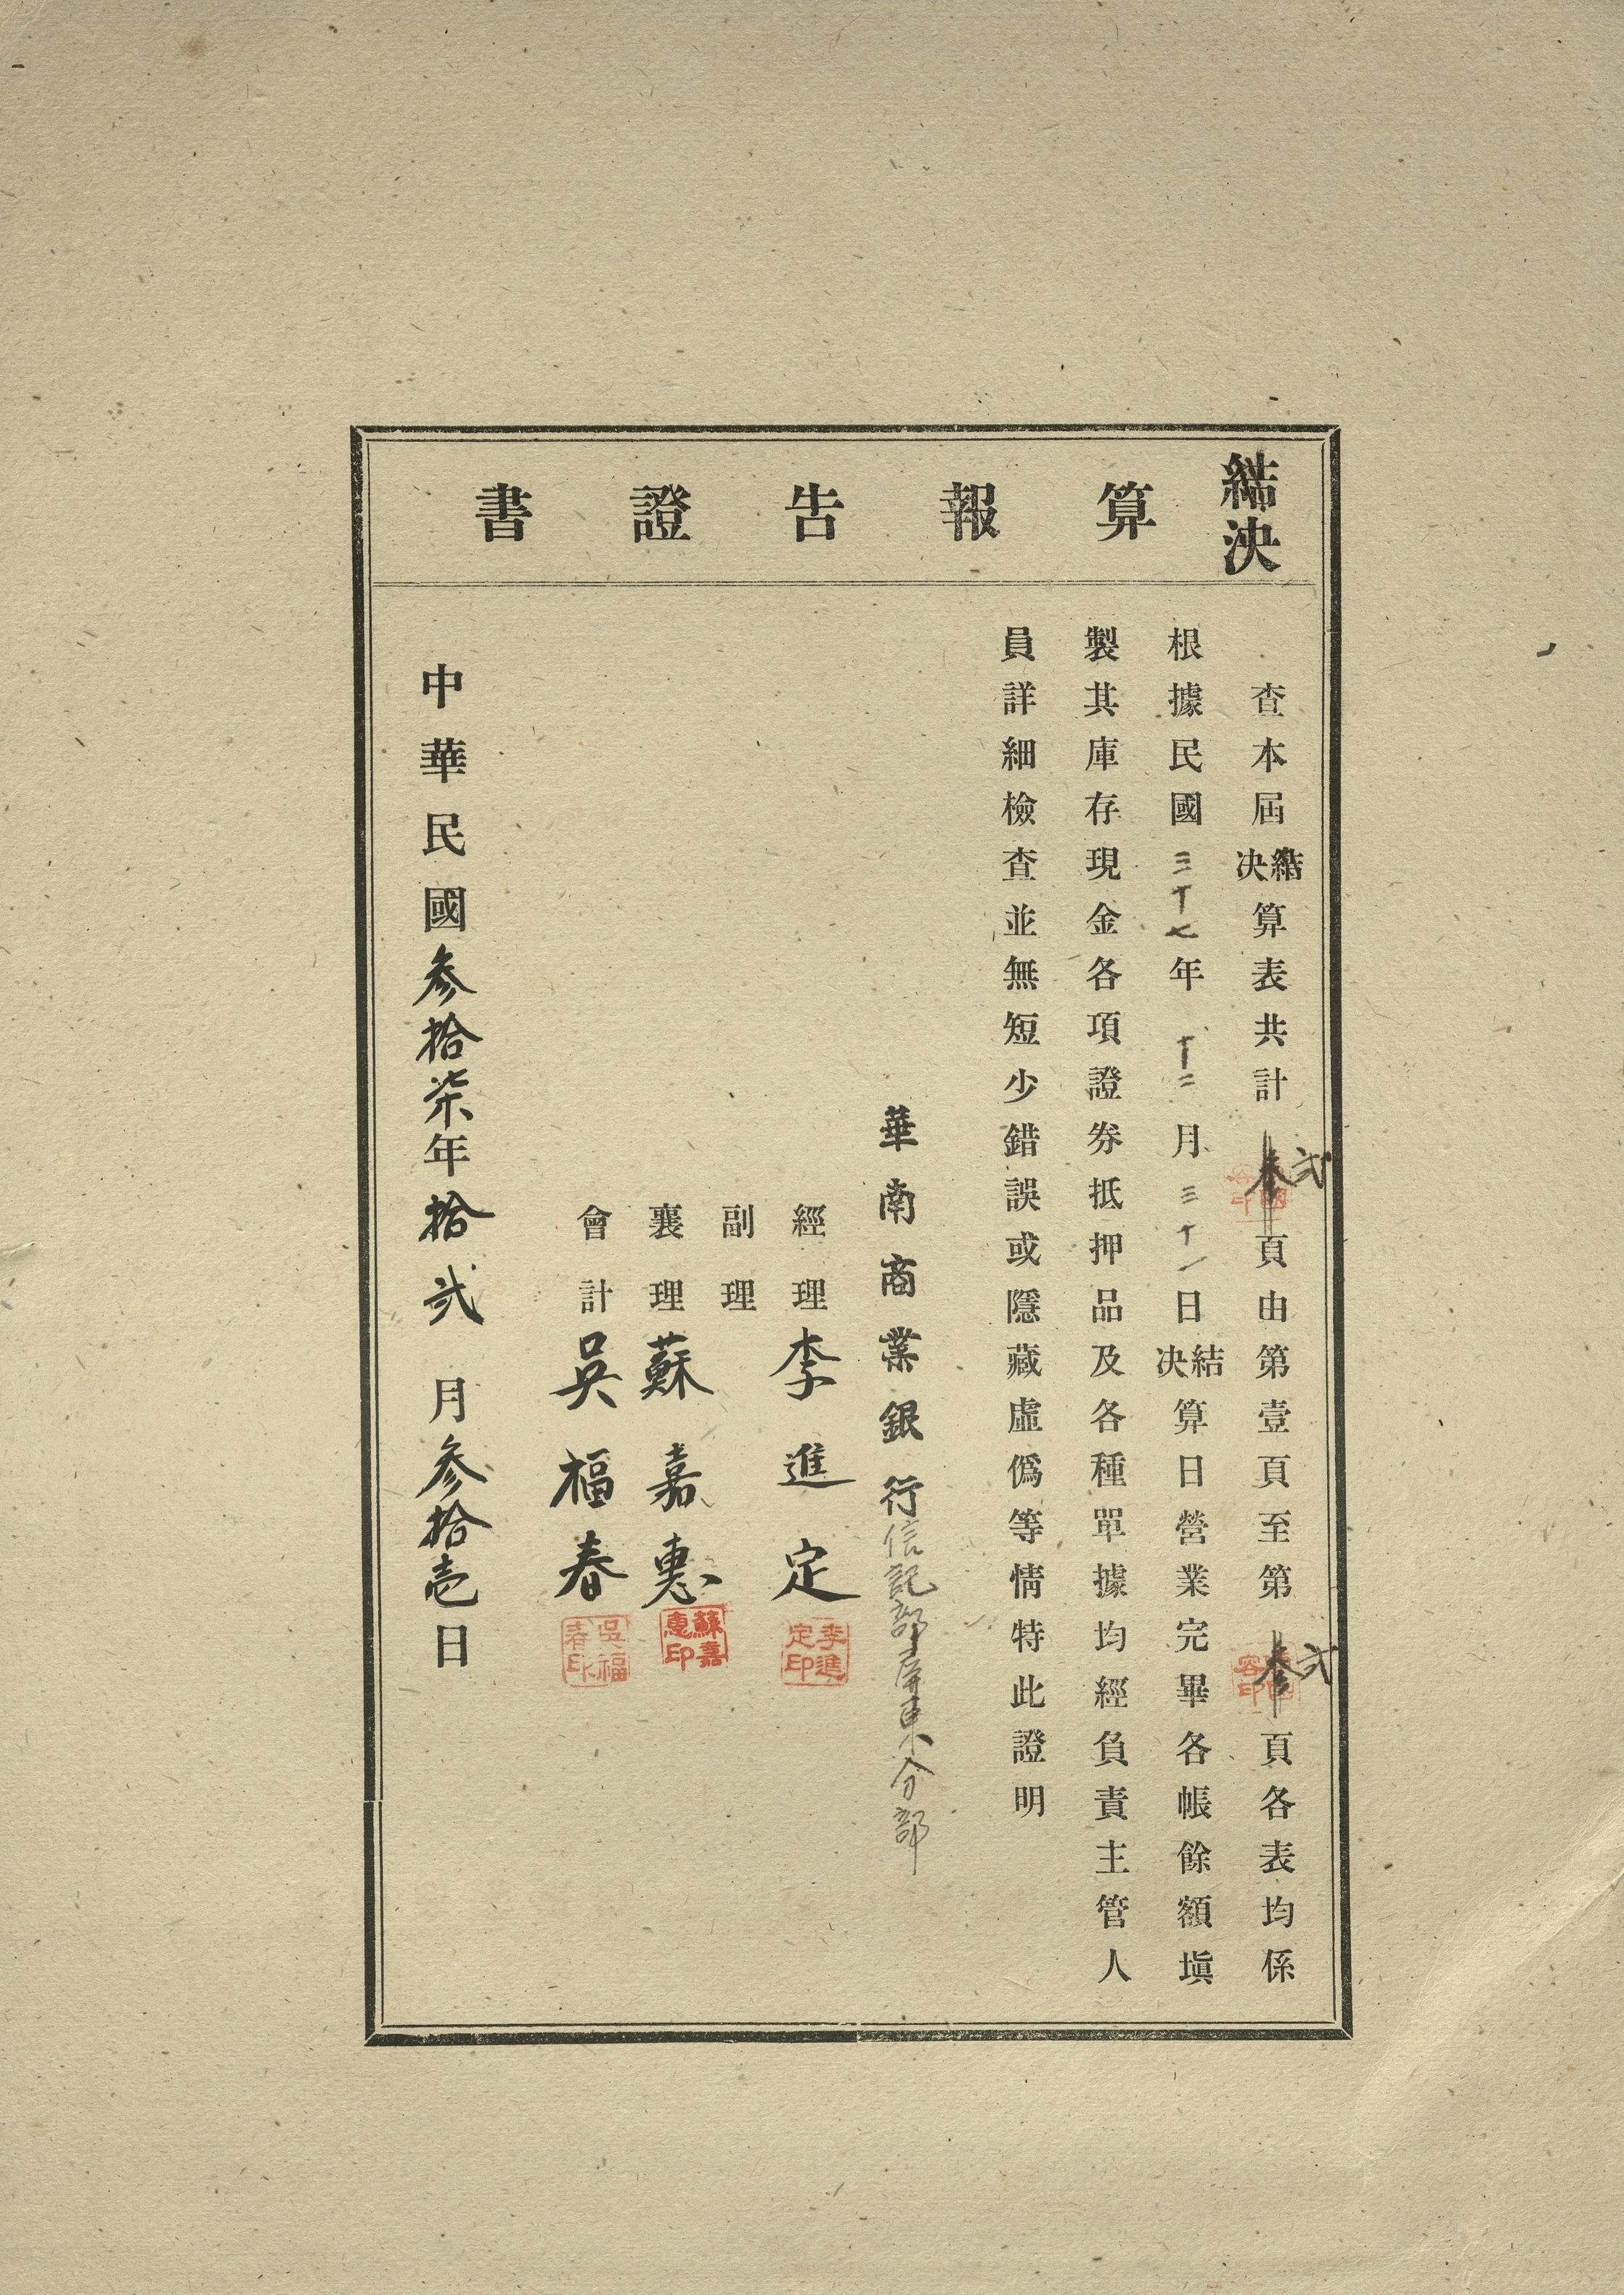 結決算報告證書
查本屆結決算表共計叁弍頁由第壹頁至第叁弍頁各表均係
根據民國三十七年十二月三十一日結決算日營業完畢各帳餘額塡
製其庫存現金各項證券抵押品及各種單據均經負責主管人
員詳細檢查並無短少錯誤或隱藏虛僞等情特此證明
華南商業銀行信託部屏東分部
經理李進定
李進定印
副理
襄理蘇嘉惠
蘇嘉惠印
會計吳福春
吳福春印
中華民國叁拾柒年拾弍月叁拾壱日